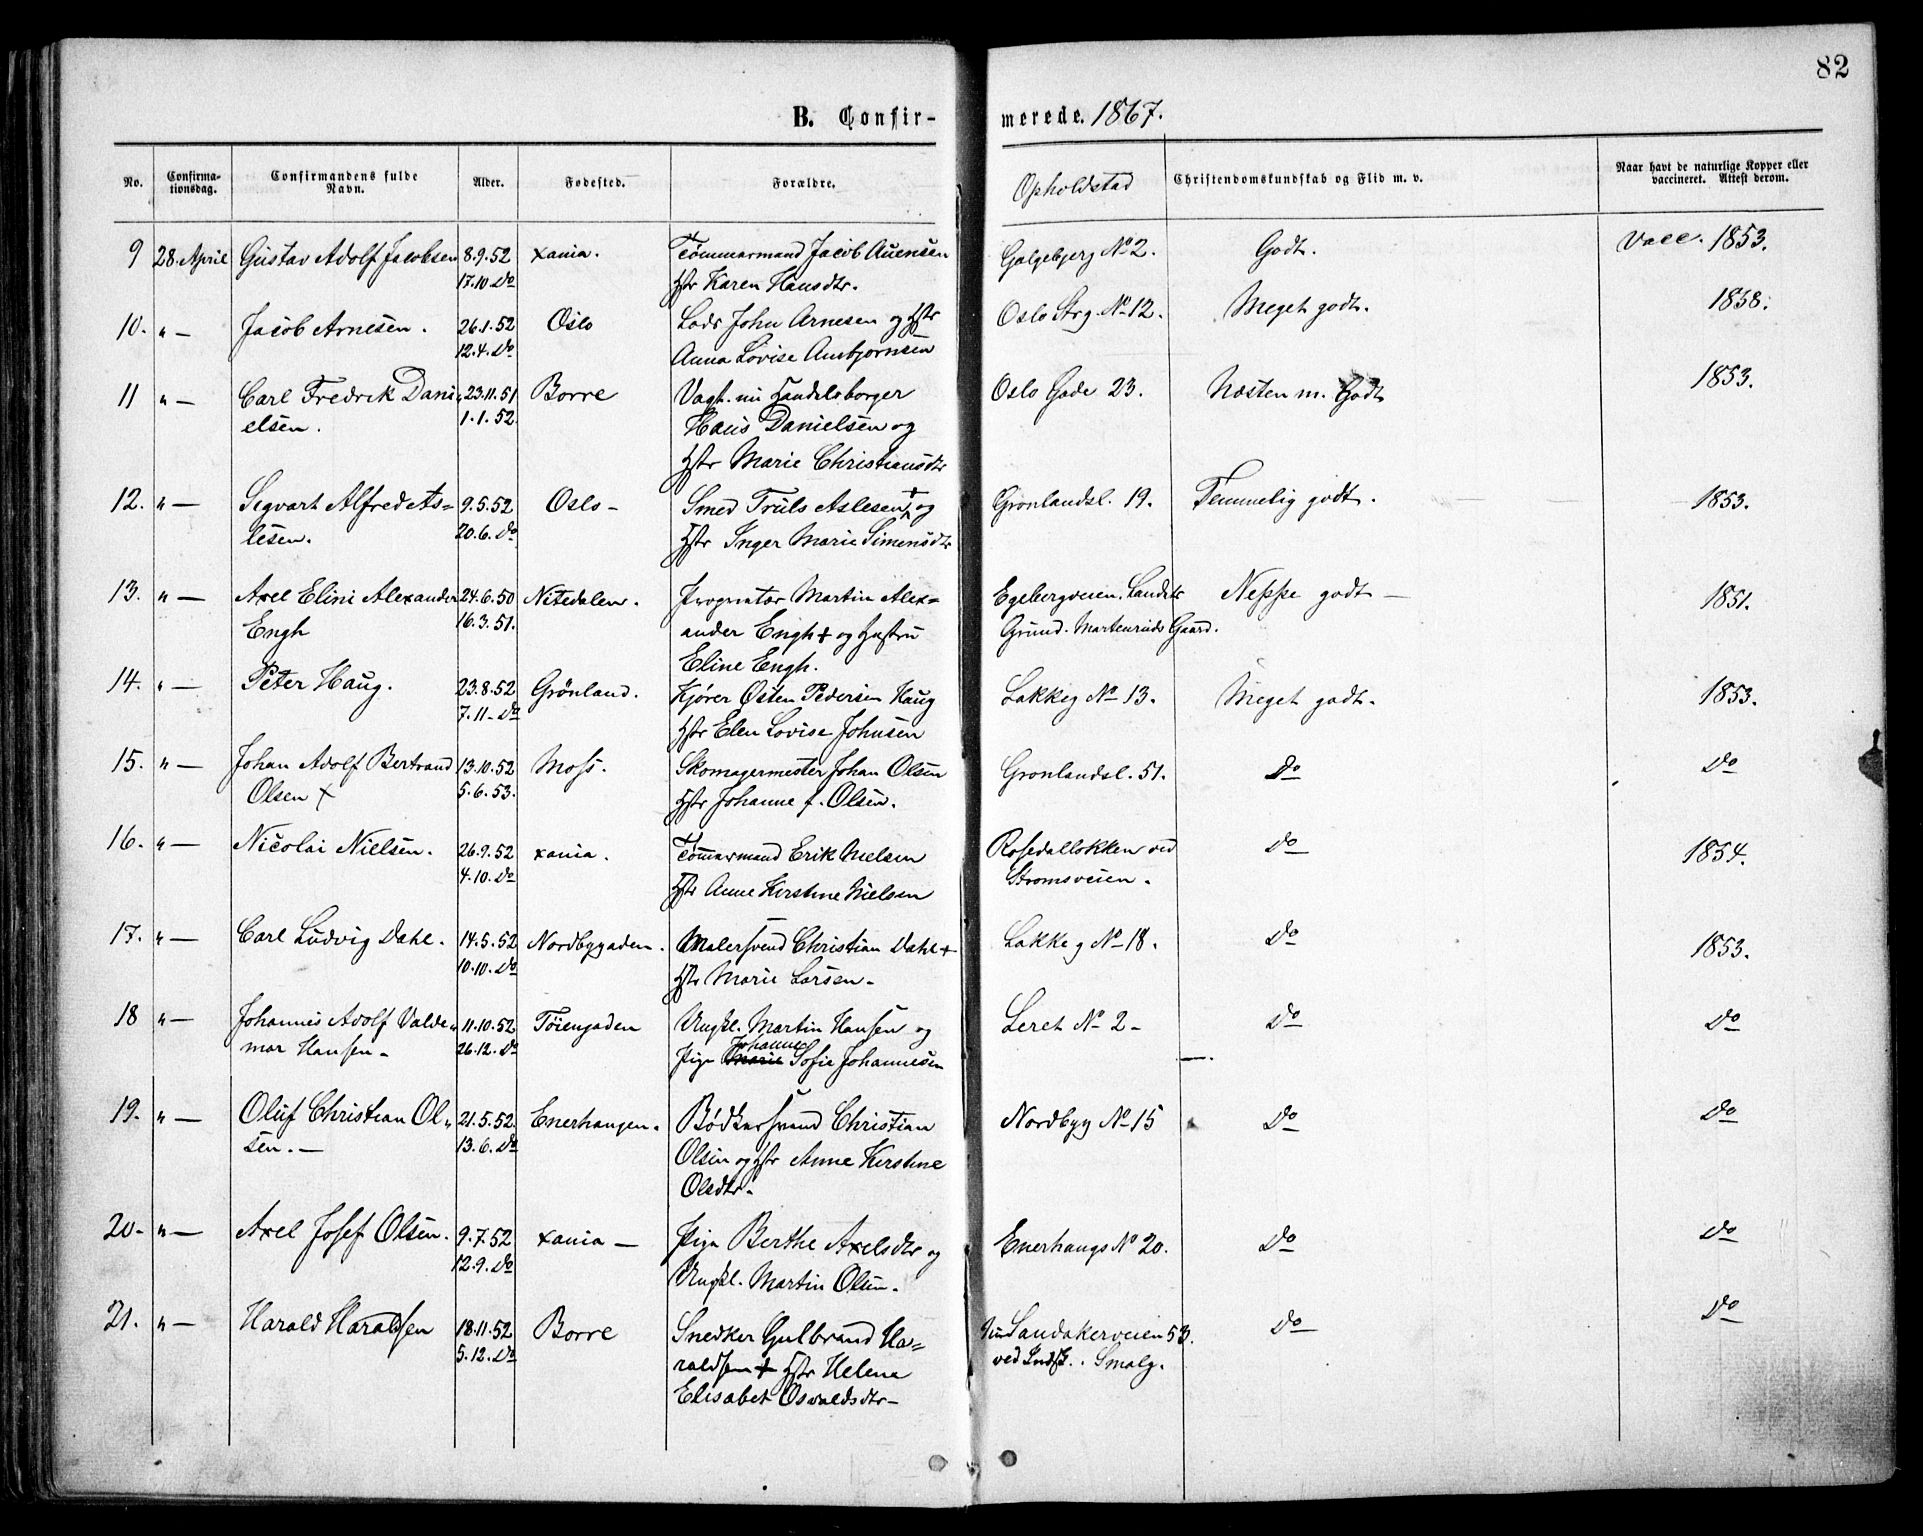 82
B. Confir-
merede. 1867.
No.
Confirma-
tionsdag.
Confirmandens fulde
Navn.
Alder.
Fødested.
Forældre.
Opholdstad
Christendomskundskab og Flid m. v.
Naar havt de naturlige Kopper eller
vaccineret. Attest derom.
9 28 April Gustav Adolf Jacobsen 8.9.52 xania. Tömmermand Jacob Auensen Galgebjerg No 2. Godt. Vacc. 1853.
17.10 Do Hstr Karen Hansdtr.
10. " — Jacob Arnesen. 26.1.52 Oslo Lods John Arnesen og Hstr Oslo Strg. No 12. Meget godt. 1858.
12.4. Do Anna Lovise Ansbjornsen
11 " — Carl Fredrek Dani 23.11.51 Borre Vagt. nu Handelsborger Oslo Gade 23. Næsten m. Godt 1853.
elsen. 1.1.52. Hans Danielsen og
Hstr Marie Christiansdtr
12. " — Segvart Alfred As= 9.5.52 Oslo - Smed Truls Aslesen + og Gronlandsl. 19. Temmelig godt. 1853.
lesen. 20.6. Do Hstr Inger Marie Simensdtr
13. " — Axel Elini Alexander 24.6.50 Nitedalen. Proprietær Martin Alex= Egebergveien. Landets Neppe godt — 1851.
Engh 16.3.51. ander Engh + og Hustru Grund. Martenruds Gaard.
Eline Engh.
14. " — Peter Haug. 23.8.52 Grönland. Kjører Osten Pedersen Haug Lakkeg No 13. Meget godt. 1853.
7.11 - Do Hstr Elen Lovise Johnsen
15. " — Johan Adolf Bertrand 13.10.52 Moss. Skomagermester Johan Olsen Gronlandsl. 51. Do Do
Olsen + 5.6.53. Hstr Johanne f. Olsen.
16. " — Nicolai Nielsen. 26.9.52 xania. Tömmermand Erik Nielsen Rosedallokken ved Do 1854.
4.10. Do Hstr Anne Kirstine Nielsen Stromsveien.
17. " — Carl Ludvig Dahl. 14.5.52 Nordbygaden. Malersvend Christian Dahl + Lakkeg No 18. Do 1853.
10.10. Do Hstr Marie Larsen.
18 " — Johannes Adolf Valde 11.10.52 Töiengaden Ungkl. Martin Hansen og Leret No 2 - Do Do
mar Hansen. 26.12. Do Pige Marie Johanne Sofie Johannesen
19. " — Oluf Christian Ol 21.5.52 Enerhaugen. Bödkersvend Christian Nordbyg No 15 Do Do
sen. — 13.6. Do Olsen og Hstr Anne Kirstine
Olsdtr.
20 - " — Axel Josef Olsen. 9.7.52 xania — Pige Berthe Axelsdtr og Enerhaugs No 20. Do Do
12.9. Do Ungkl. Martin Olsen.
21. " — Harald Haraldsen 18.11.52 Borre Snedker Gulbrand Ha= Sandakerveien 53. Do Do
5.12. Do raldsen + Hstr Helena ved Smalg.
Elisabet Osvaldsdtr -